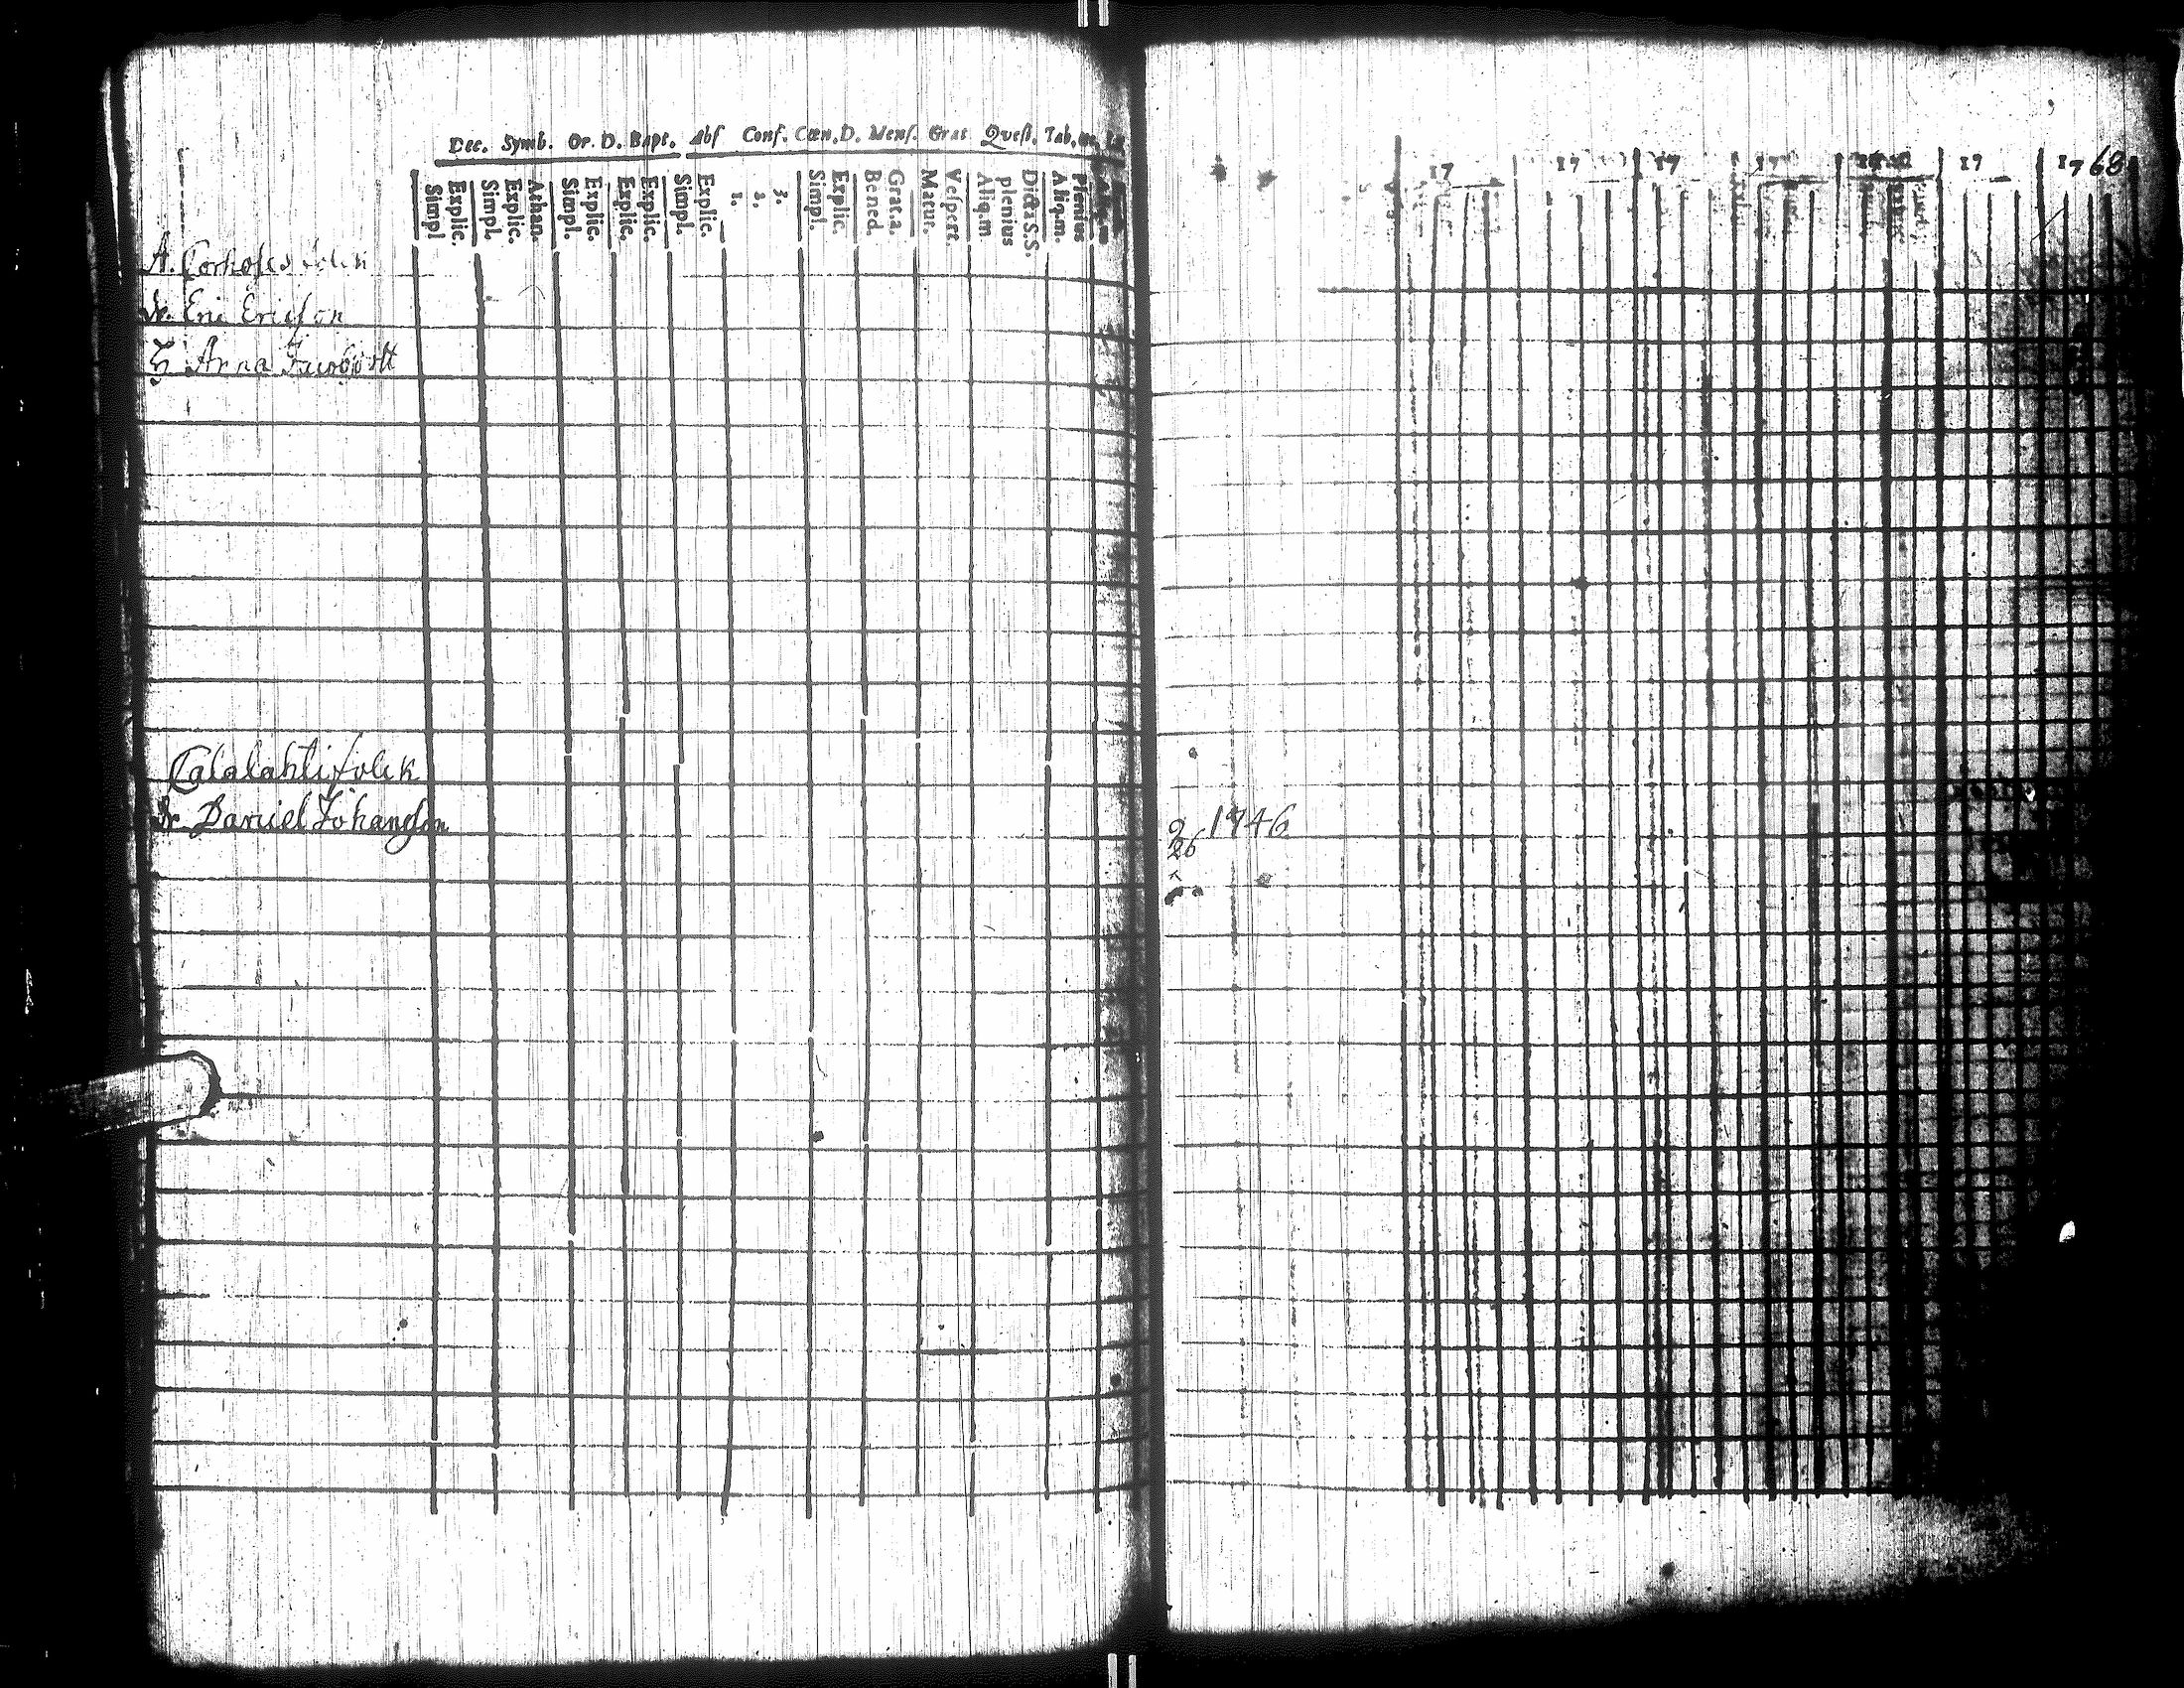 Dec. Symb. Or. D. Bapt. Abs Conf. Cœn. D. Mens. Grat Qvest. Tab.
Simpl
Explic.
Simpl.
Explic.
Athan.
Simpl.
Explic.
Explic.
Explic.
Simpl.
Explic.
1.
2.
3.
Simpl.
Explic.
Bened.
Grat.a.
Matut.
Vespert.
Aliq.m
plenius
Dicta S.S.
Aliq.m.
Plenius
17 17 17 17 17 1768
A.
Dr. Eric Ericson
H Anna
Calalahti folck
Dr Daniel Johanson
2 1746
26